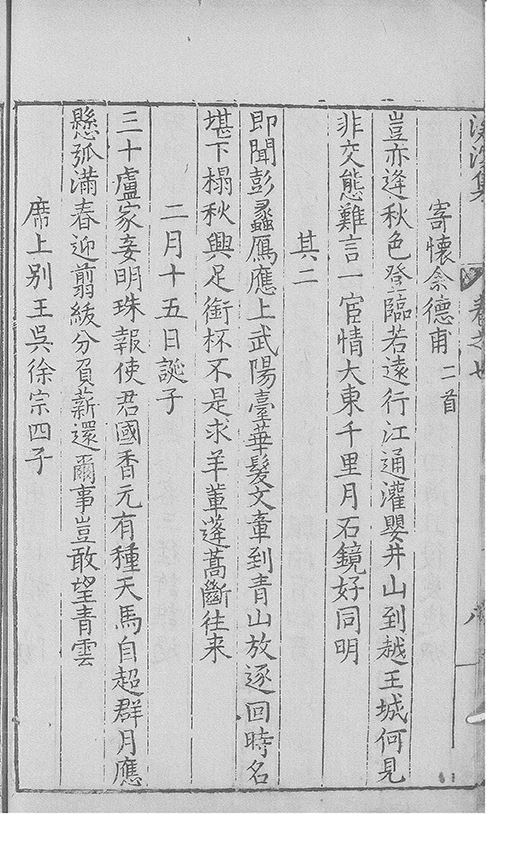 集
寄懷余德甫二首
豈亦逢秋色登臨若遠行江通灌嬰井山到越王城何見
非交態難言一宦情大東千里月石鏡好同明
其二
即聞彭蠡鴈應上武陽臺華髮文章到青山放逐回時名
堪下榻秋興足銜杯不是求羊輩蓬蒿斷往来
二月十五日誕子
三十盧家妾明珠報使君國香元有種天馬自超群月應
懸弧滿春迎翦綵分負薪還爾事豈敢望青雲
席上別王吳徐宗四子